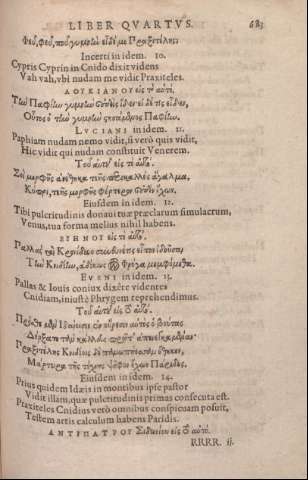 LIBER QVARTVS. 683
Φεῦ, φεῦ, ποῦ γυμνὴν εἶδέ με Πραξιτέλης;
Incerti in idem. 10.
Cypris Cyprin in Cnido dixit videns
Vah vah, vbi nudam me vidit Praxiteles.
ΛΟΥΚΙΑΝΟΥ εἰς τὸ αὐτό.
Τὴν Παφίην γυμνὴν οὐδεὶς ἴδεν· εἰ δέ τις εἶδεν,
Οὗτος ὁ τὴν γυμνὴν στησάμενος Παφίην.
LVCIANI in idem. 11.
Paphiam nudam nemo vidit, si verò quis vidit,
Hic vidit qui nudam constituit Venerem.
Τοῦ αὐτοῦ εἰς τὸ αὐτό.
Σοὶ μορφῆς ἀνέθηκα τεῆς περικαλλὲς ἄγαλμα,
Κύπρι, τεῆς μορφῆς φέρτερον οὐδὲν ἔχων.
Eiusdem in idem. 12.
Tibi pulcritudinis donaui tuæ præclarum simulacrum,
Venus, tua forma melius nihil habens.
ΕΥΗΝΟΥ εἰς τὸ αὐτό.
Παλλὰς καὶ Κρονίδαο συνευνέτις εἶπον ἰδοῦσαι
Τὴν Κνιδίην, ἀδίκως τὸν Φρύγα μεμφόμεθα.
EVENI in idem. 13.
Pallas & Iouis coniux dixêre videntes
Cnidiam, iniustè Phrygem reprehendimus.
Τοῦ αὐτοῦ εἰς τὸ αὐτό.
Πρόσθε μὲν Ἰδαίοισιν ἐν οὔρεσιν αὐτὸς ὁ βούτας
Δέρξατο τὰν κάλλους πρῶτ' ἀπενεγκαμέναν·
Πραξιτέλης Κνιδίοις δὲ πανωπήεσσαν ἔθηκεν,
Μάρτυρα τῆς τέχνης ψῆφον ἔχων Πάριδος.
Eiusdem in idem. 14.
Prius quidem Idæis in montibus ipse pastor
Vidit illam, quæ pulcritudinis primas consecuta est.
Praxiteles Cnidiis verò omnibus conspicuam posuit,
Testem artis calculum habens Paridis.
ΑΝΤΙΠΑΤΡΟΥ Σιδωνίου εἰς τὸ αὐτό.
RRRR. ij.